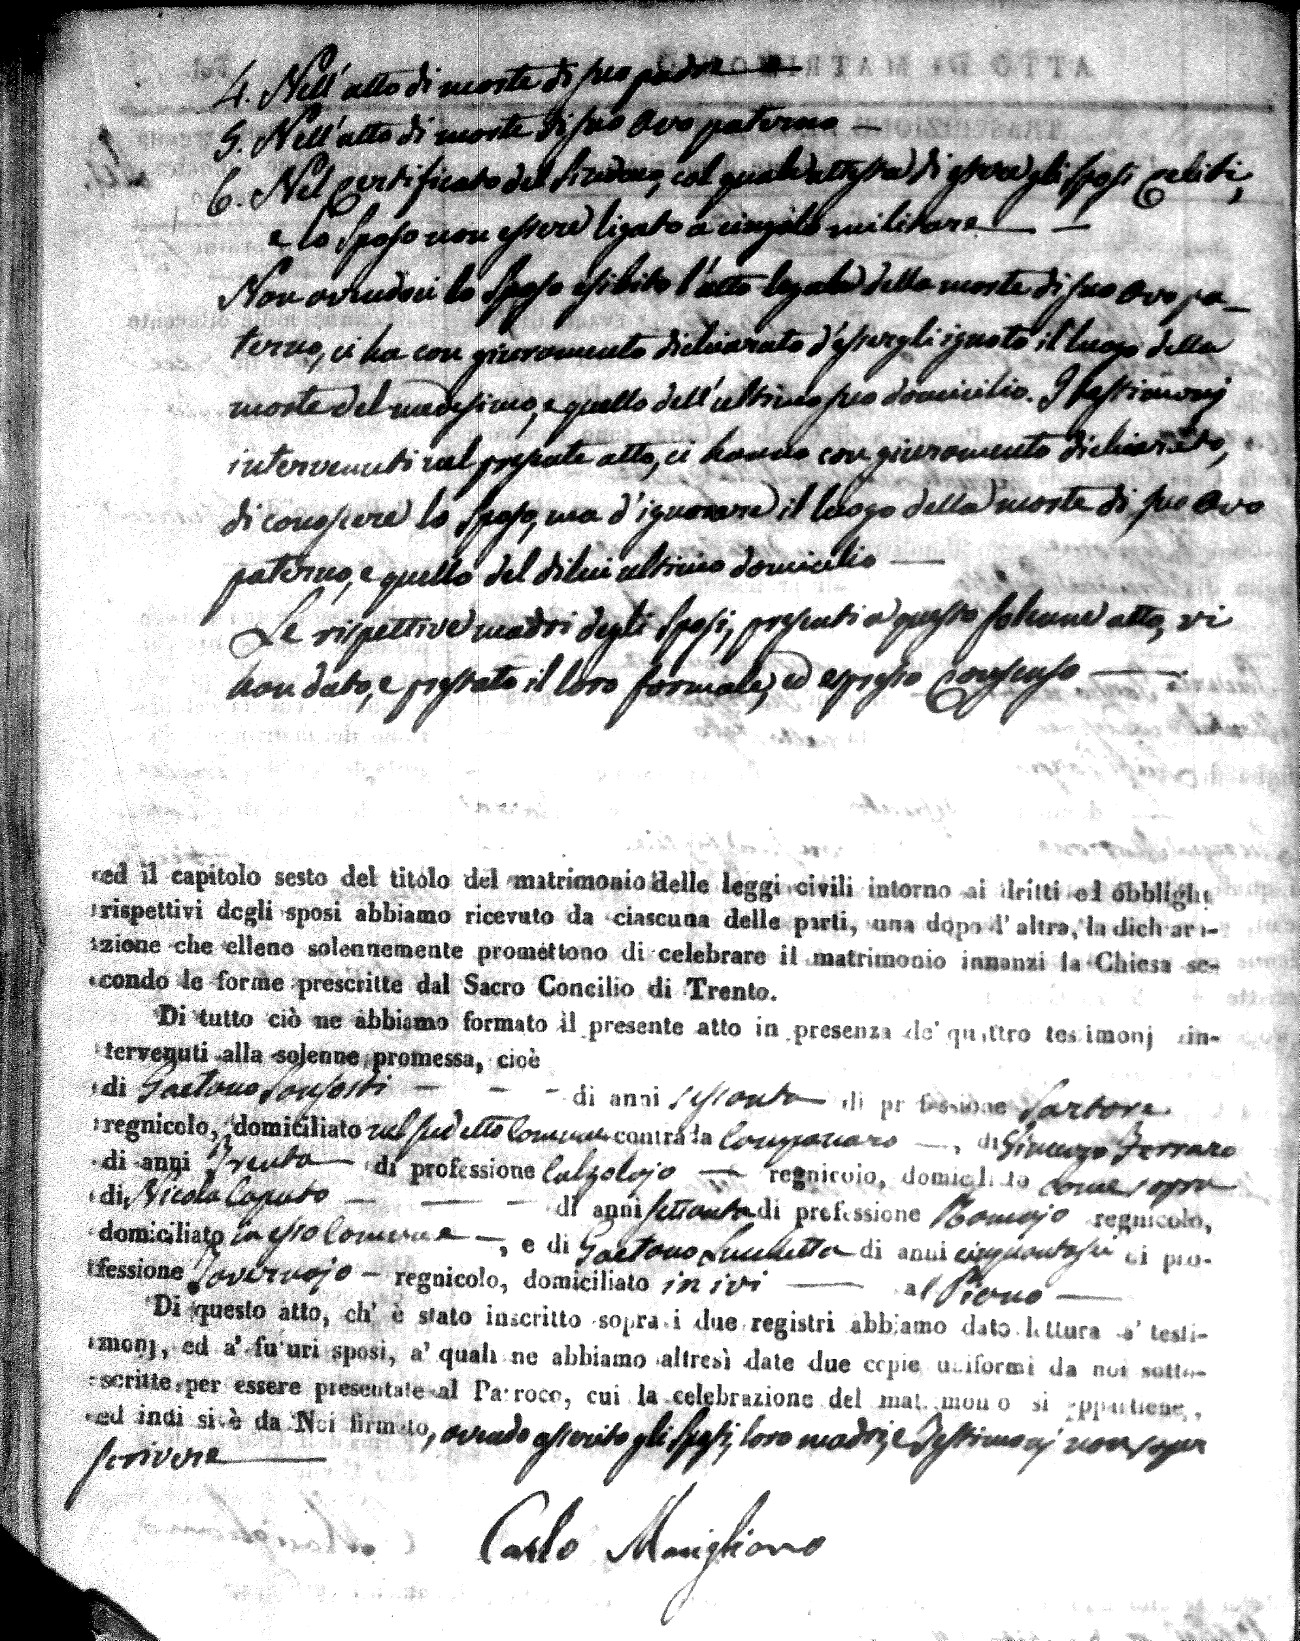 4. Nell'atto di morte di suo padre
5. Nell'atto di morte di suo avo paterno
6. Nel Certificato del Sindaco, col quale attesta di essere gli sposi Celibi,
e lo sposo non essere ligato a cingolo militare
Non avendoci lo Sposo esibito l'atto legale della morte di suo avo pa-
terno, ci ha con giuramento dichiarato d'essergli ignoto il luogo della
morte del medesimo, e quello dell'ultimo suo domicilio. I testimonj
intervenuti nel presente atto, ci hanno con giuramento dichiarato,
di conoscere lo Sposo, ma d'ignorare il luogo della morte di suo Avo
paterno, e quello del di lui ultimo domicilio
Le rispettive madri degli Sposi, presenti a questo solenne atto, vi
han dato, e prestato il loro formale, ed espresso Consenso
ed il capitolo sesto del titolo del matrimonio delle leggi civili intorno ai dritti ed obblighi
rispettivi degli sposi abbiamo ricevuto da ciascuna delle parti, una dopo l'altra, la dichiara-
zione che elleno solennemente promettono di celebrare il matrimonio innanzi la Chiesa se-
condo le forme prescritte dal Sacro Concilio di Trento.
Di tutto ciò ne abbiamo formato il presente atto in presenza de' quattro testimonj in-
tervenuti alla solenne promessa, cioè
di Gaetano di anni sessanta di professione Sartore
regnicolo, domiciliato nel sudetto Comune contrada , di Vincenzo Ferraro
di anni Trenta di professione Calzolajo regnicolo, domiciliato come sopra
di Nicola Caputo di anni settanta di professione regnicolo,
domiciliato in esso Comune , e di Gaetano di anni cinquantasei di pro-
fessione Tavernajo regnicolo, domiciliato in ivi al
Di questo atto, ch' è stato inscritto sopra i due registri abbiamo dato lettura a' testi-
monj, ed a' futuri sposi, a' quali ne abbiamo altresì date due copie uniformi da noi sotto-
scritte per essere presentate al Parroco, cui la celebrazione del matrimonio si appartiene,
ed indi si è da Noi firmato, avendo asserito gli Sposi, loro madri, e Testimonj non saper
scrivere
Carlo Manigliano